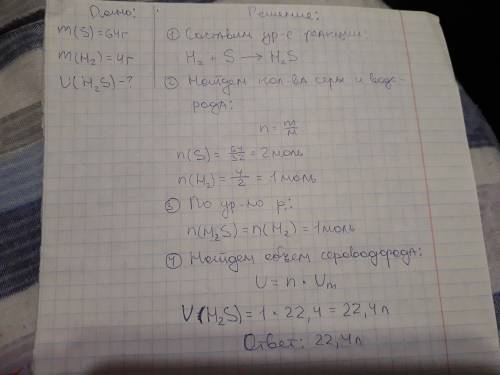 Дано:
m(S)=64г
m(H₂)=4г
V(H₂S)-?
Решение:
① Составим ур-е реакции:
H₂ + S → H₂S
② Найдем кол-ва серы и водо-
рода:
n = m/M
n(S) = 64/32 = 2моль
n(H₂) = 4/2 = 1моль
③ По ур-ю р:
n(H₂S) = n(H₂) = 1моль
④ Найдем объем сероводорода:
V = n · Vm
V(H₂S) = 1 · 22,4 = 22,4л
Ответ: 22,4л